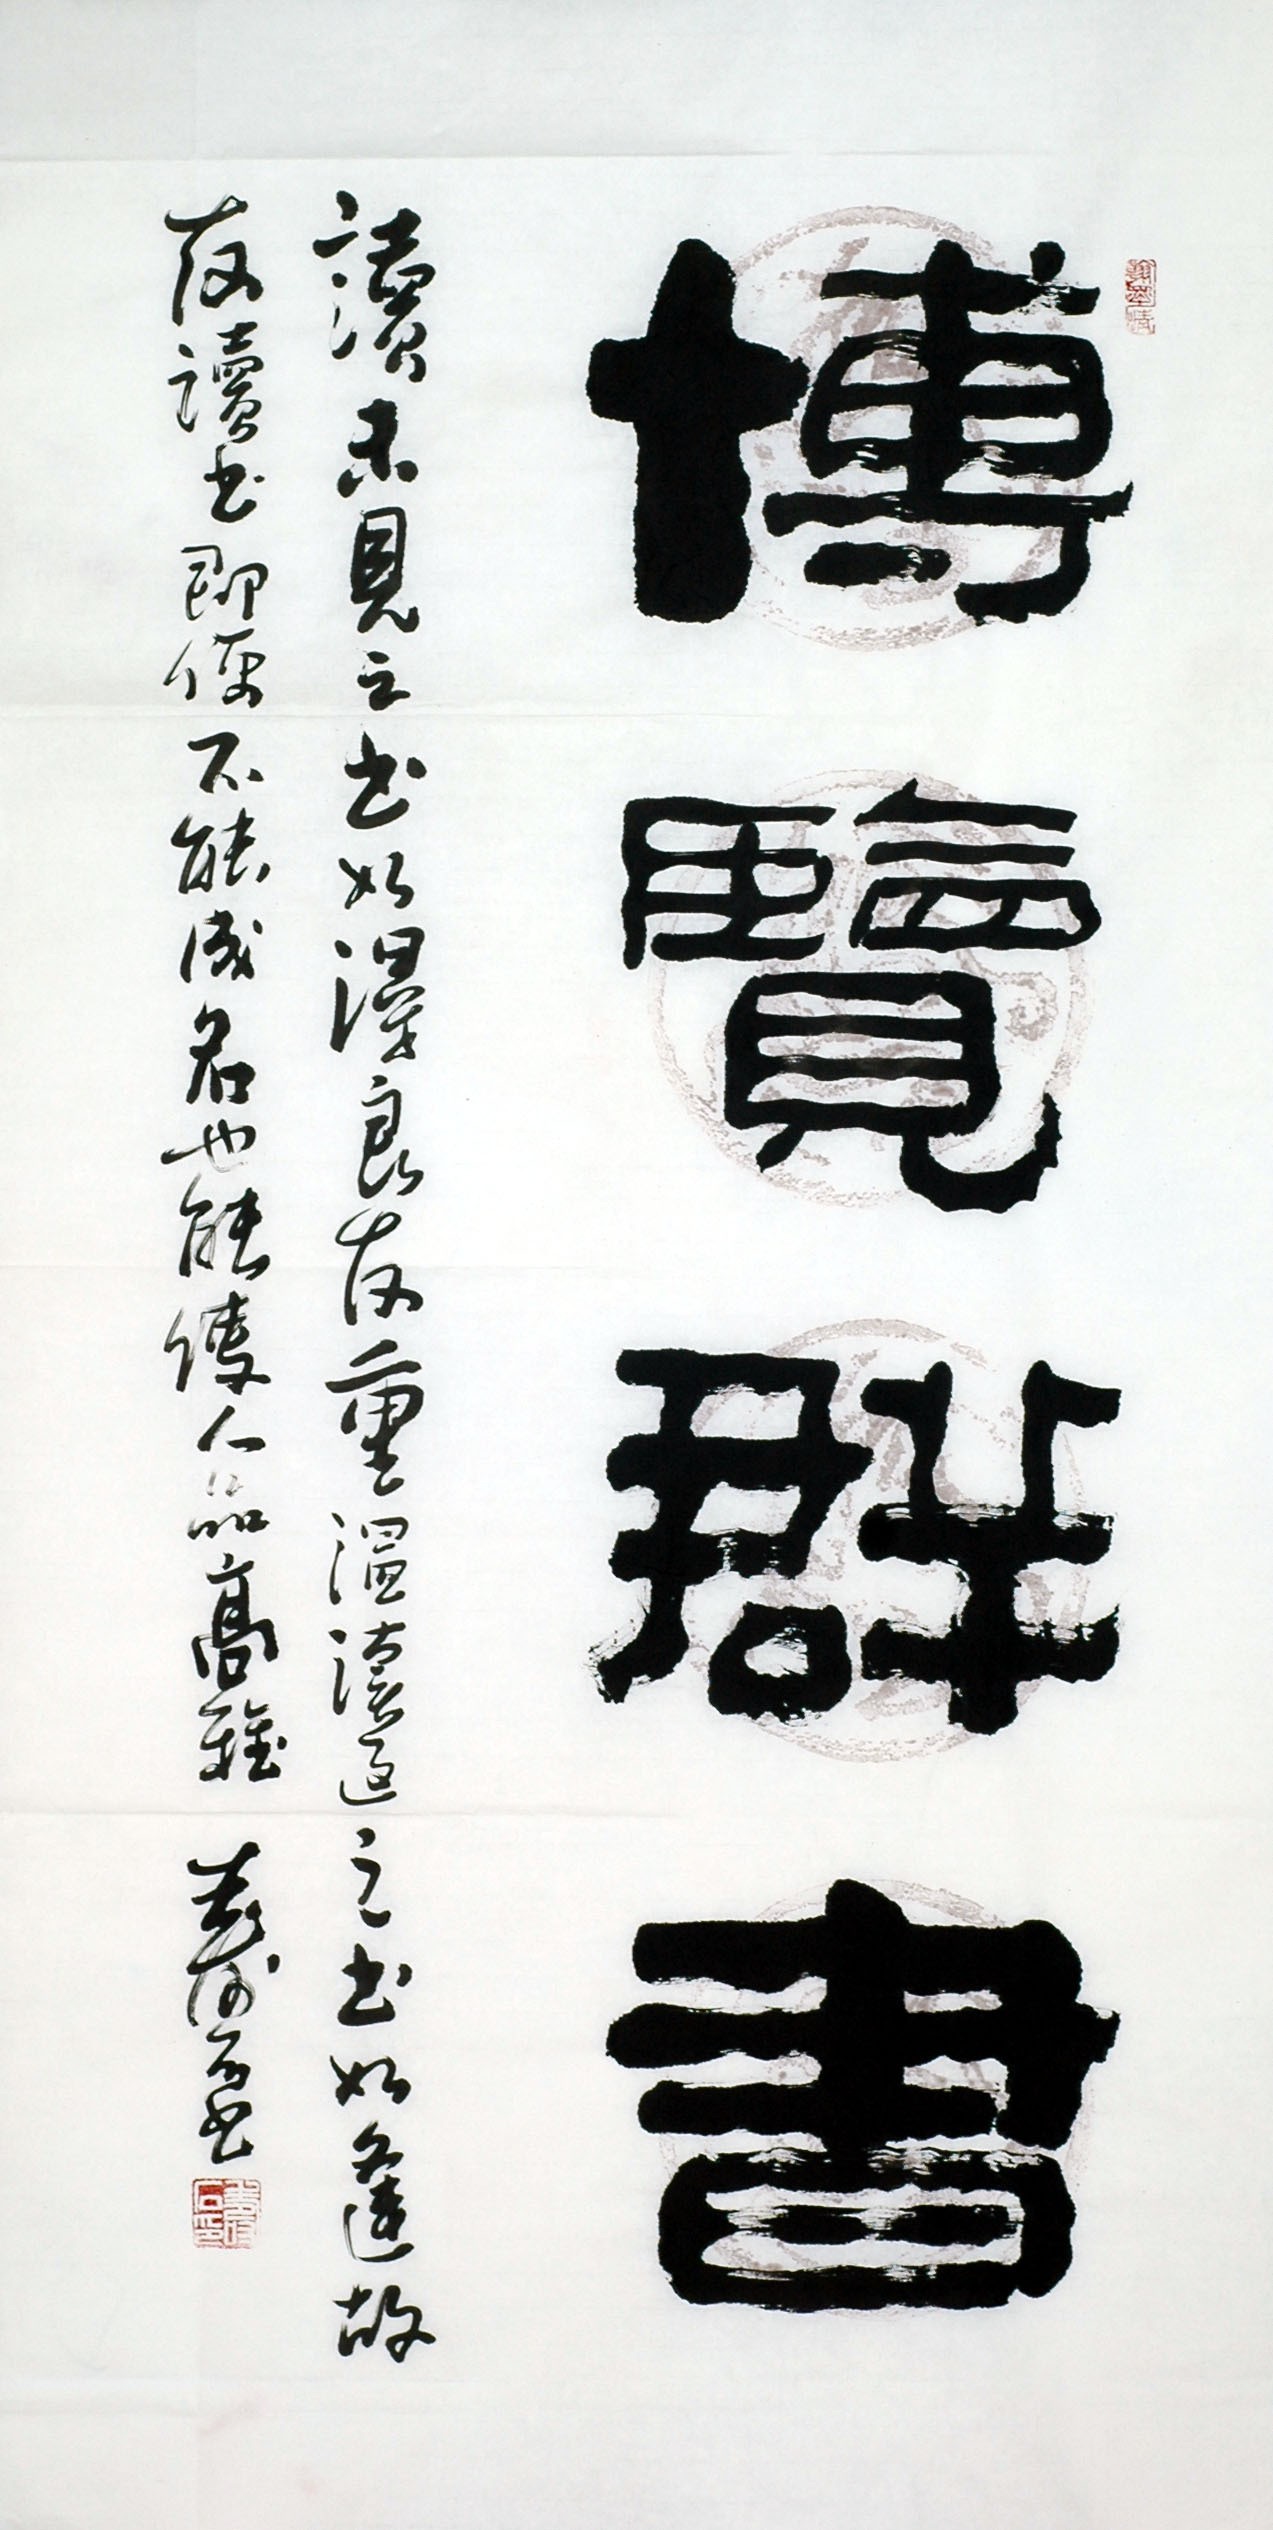 博覽群書
讀未見之书如得良友重温讀过之书如逢故
友讀书即使不能成名也能使人品高雅